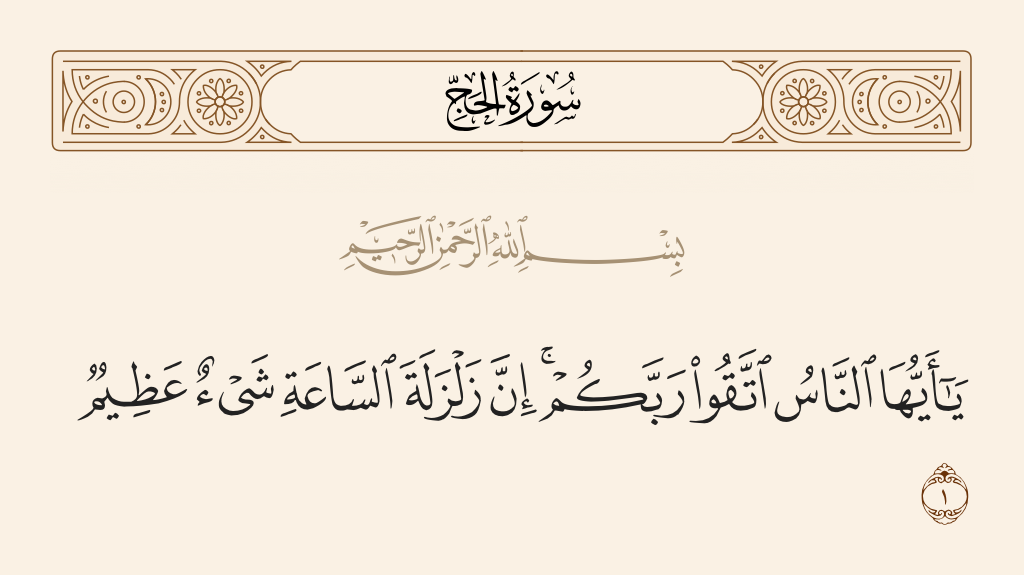 سُورَةُ الْحَجِّ
بِسْمِ ٱللَّهِ ٱلرَّحْمَٰنِ ٱلرَّحِيمِ
يَـٰٓأَيُّهَا ٱلنَّاسُ ٱتَّقُوا۟ رَبَّكُمْ ۚ إِنَّ زَلْزَلَةَ ٱلسَّاعَةِ شَىْءٌ عَظِيمٌ
١